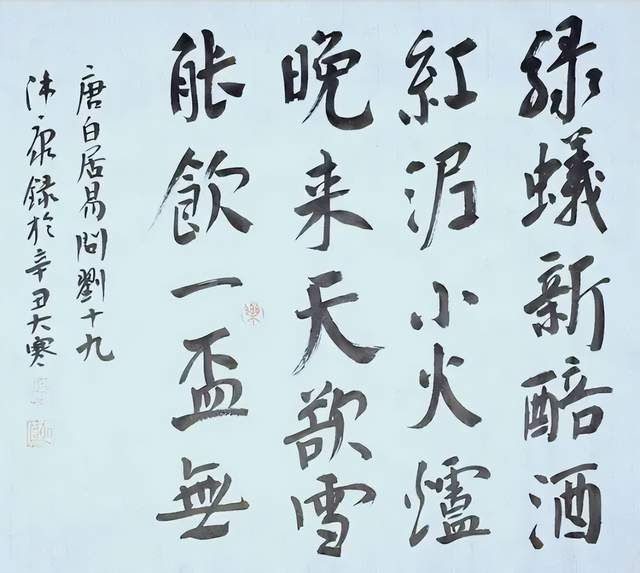 綠蟻新醅酒
紅泥小火爐
晚来天欲雪
能飲一盃無
唐白居易問劉十九
沐康録於辛丑大寒